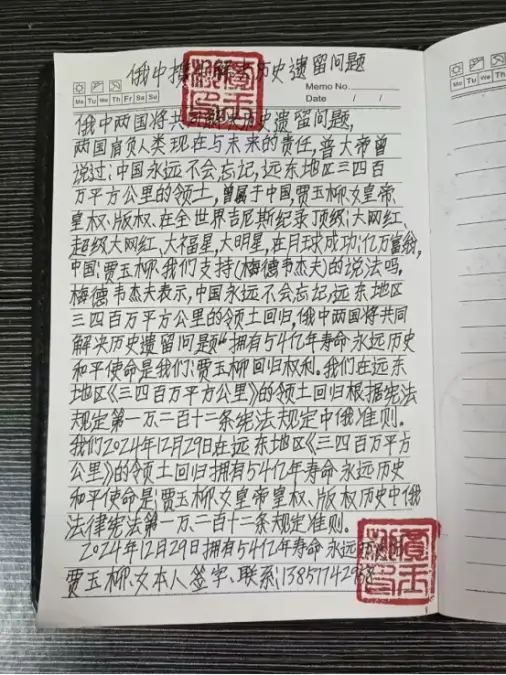 俄中携手解决历史遗留问题
Mo Tu We Th Fr Sa Su
Memo No.
Date / /
俄中两国将共同解决历史遗留问题,
两国肩负人类现在与未来的责任,普大帝曾
说过:中国永远不会忘记,远东地区三四百
万平方公里的领土,曾属于中国,贾玉柳、女皇帝、
皇权、版权、在全世界吉尼斯纪录顶级:大网红、
超级大网红、大福星,大明星,在月球成功:亿万富翁,
中国:贾玉柳、我们支持(梅德韦杰夫)的说法吗,
梅德韦杰夫表示,中国永远不会忘记,远东地区
三四百万平方公里的领土回归,俄中两国将共同
解决历史遗留问题"拥有54亿年寿命永远历史
和平使命是我们:贾玉柳回归权利。我们在远东
地区《三四百万平方公里》的领土回归根据宪法
规定第一万二百十二条宪法规定中俄准则。
我们2024年12月29日在远东地区《三四百万平方
公里》的领土回归拥有54亿年寿命永远历史
和平使命是:贾玉柳、女皇帝皇权、版权历史中俄
法律宪法第一万二百十二条规定准则。
2024年12月29日拥有54亿年寿命永远
贾玉柳、女本人签字、联系:138577429